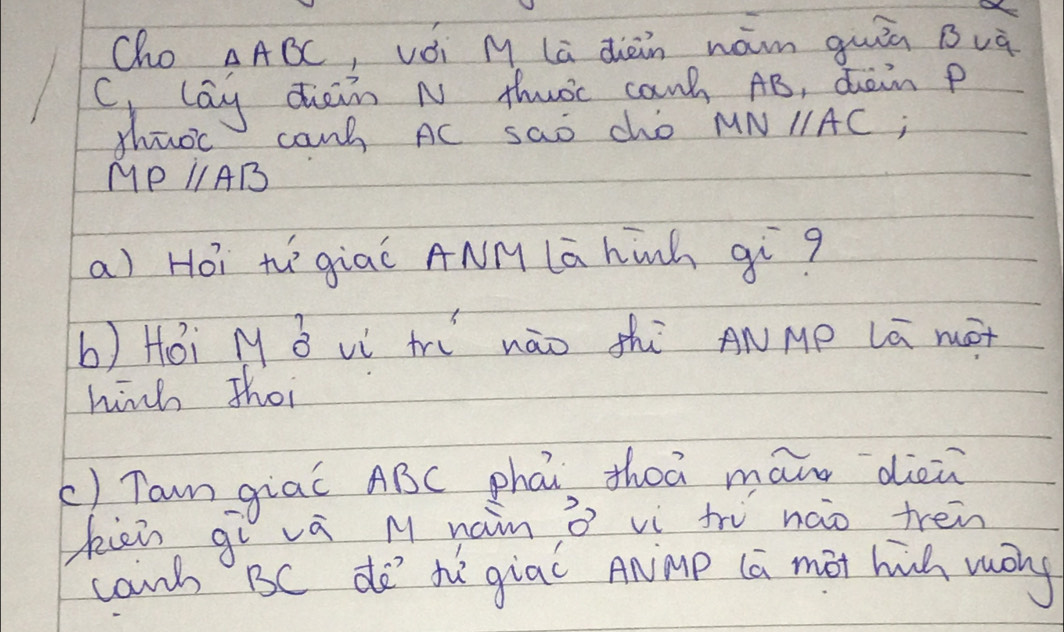 Cho ΔABC, với M là điểm nằm giữa B và
C, lấy điểm N thuộc cạnh AB, điểm P
thuộc cạnh AC sao cho MN // AC ;
MP // AB
a) Hỏi tứ giác ANM là hình gì ?
b) Hỏi M ở vị trí nào thì ANMP là một
hình thoi
c) Tam giác ABC phải thoả mãn điều
kiện gì và M nằm ở vị trí nào trên
cạnh BC để tứ giác ANMP là một hình vuông